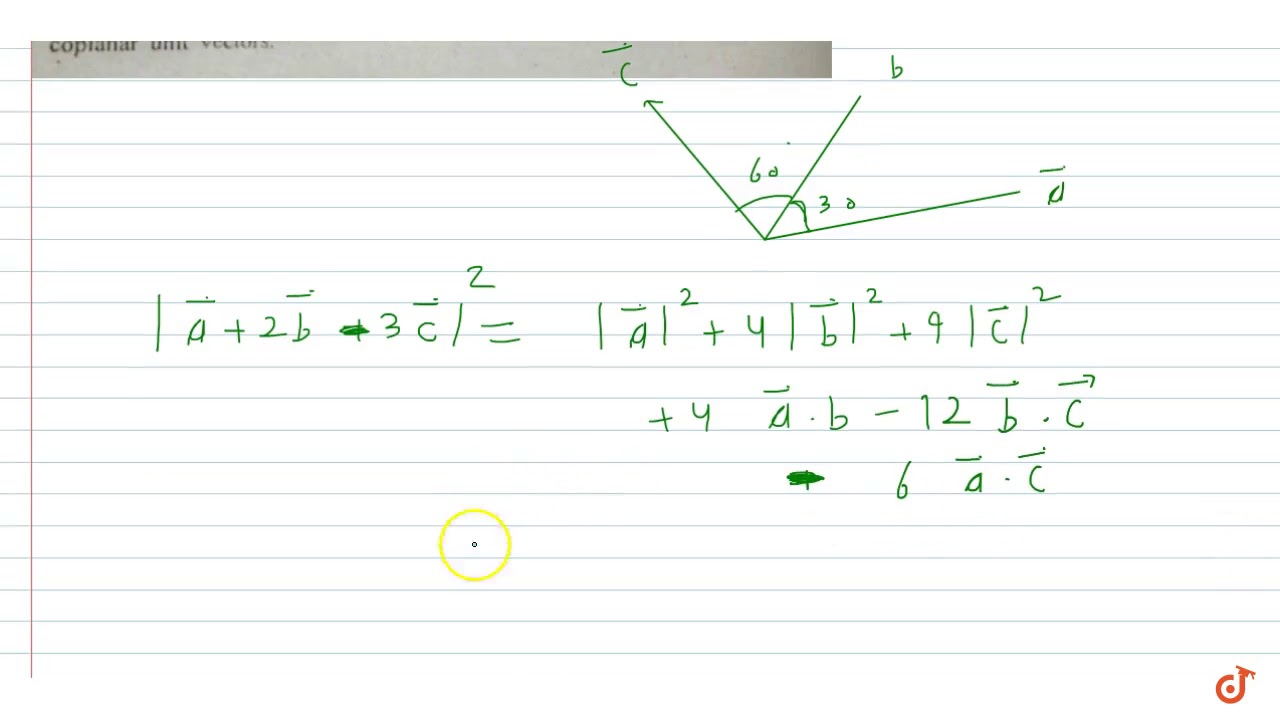 coplanar unit vectors.
c⃗ b
60
30 a⃗
|a⃗ + 2b⃗ - 3c⃗|² = |a⃗|² + 4|b⃗|² + 9|c⃗|²
+ 4 a⃗ . b - 12 b⃗ . c⃗
- 6 a⃗ . c⃗